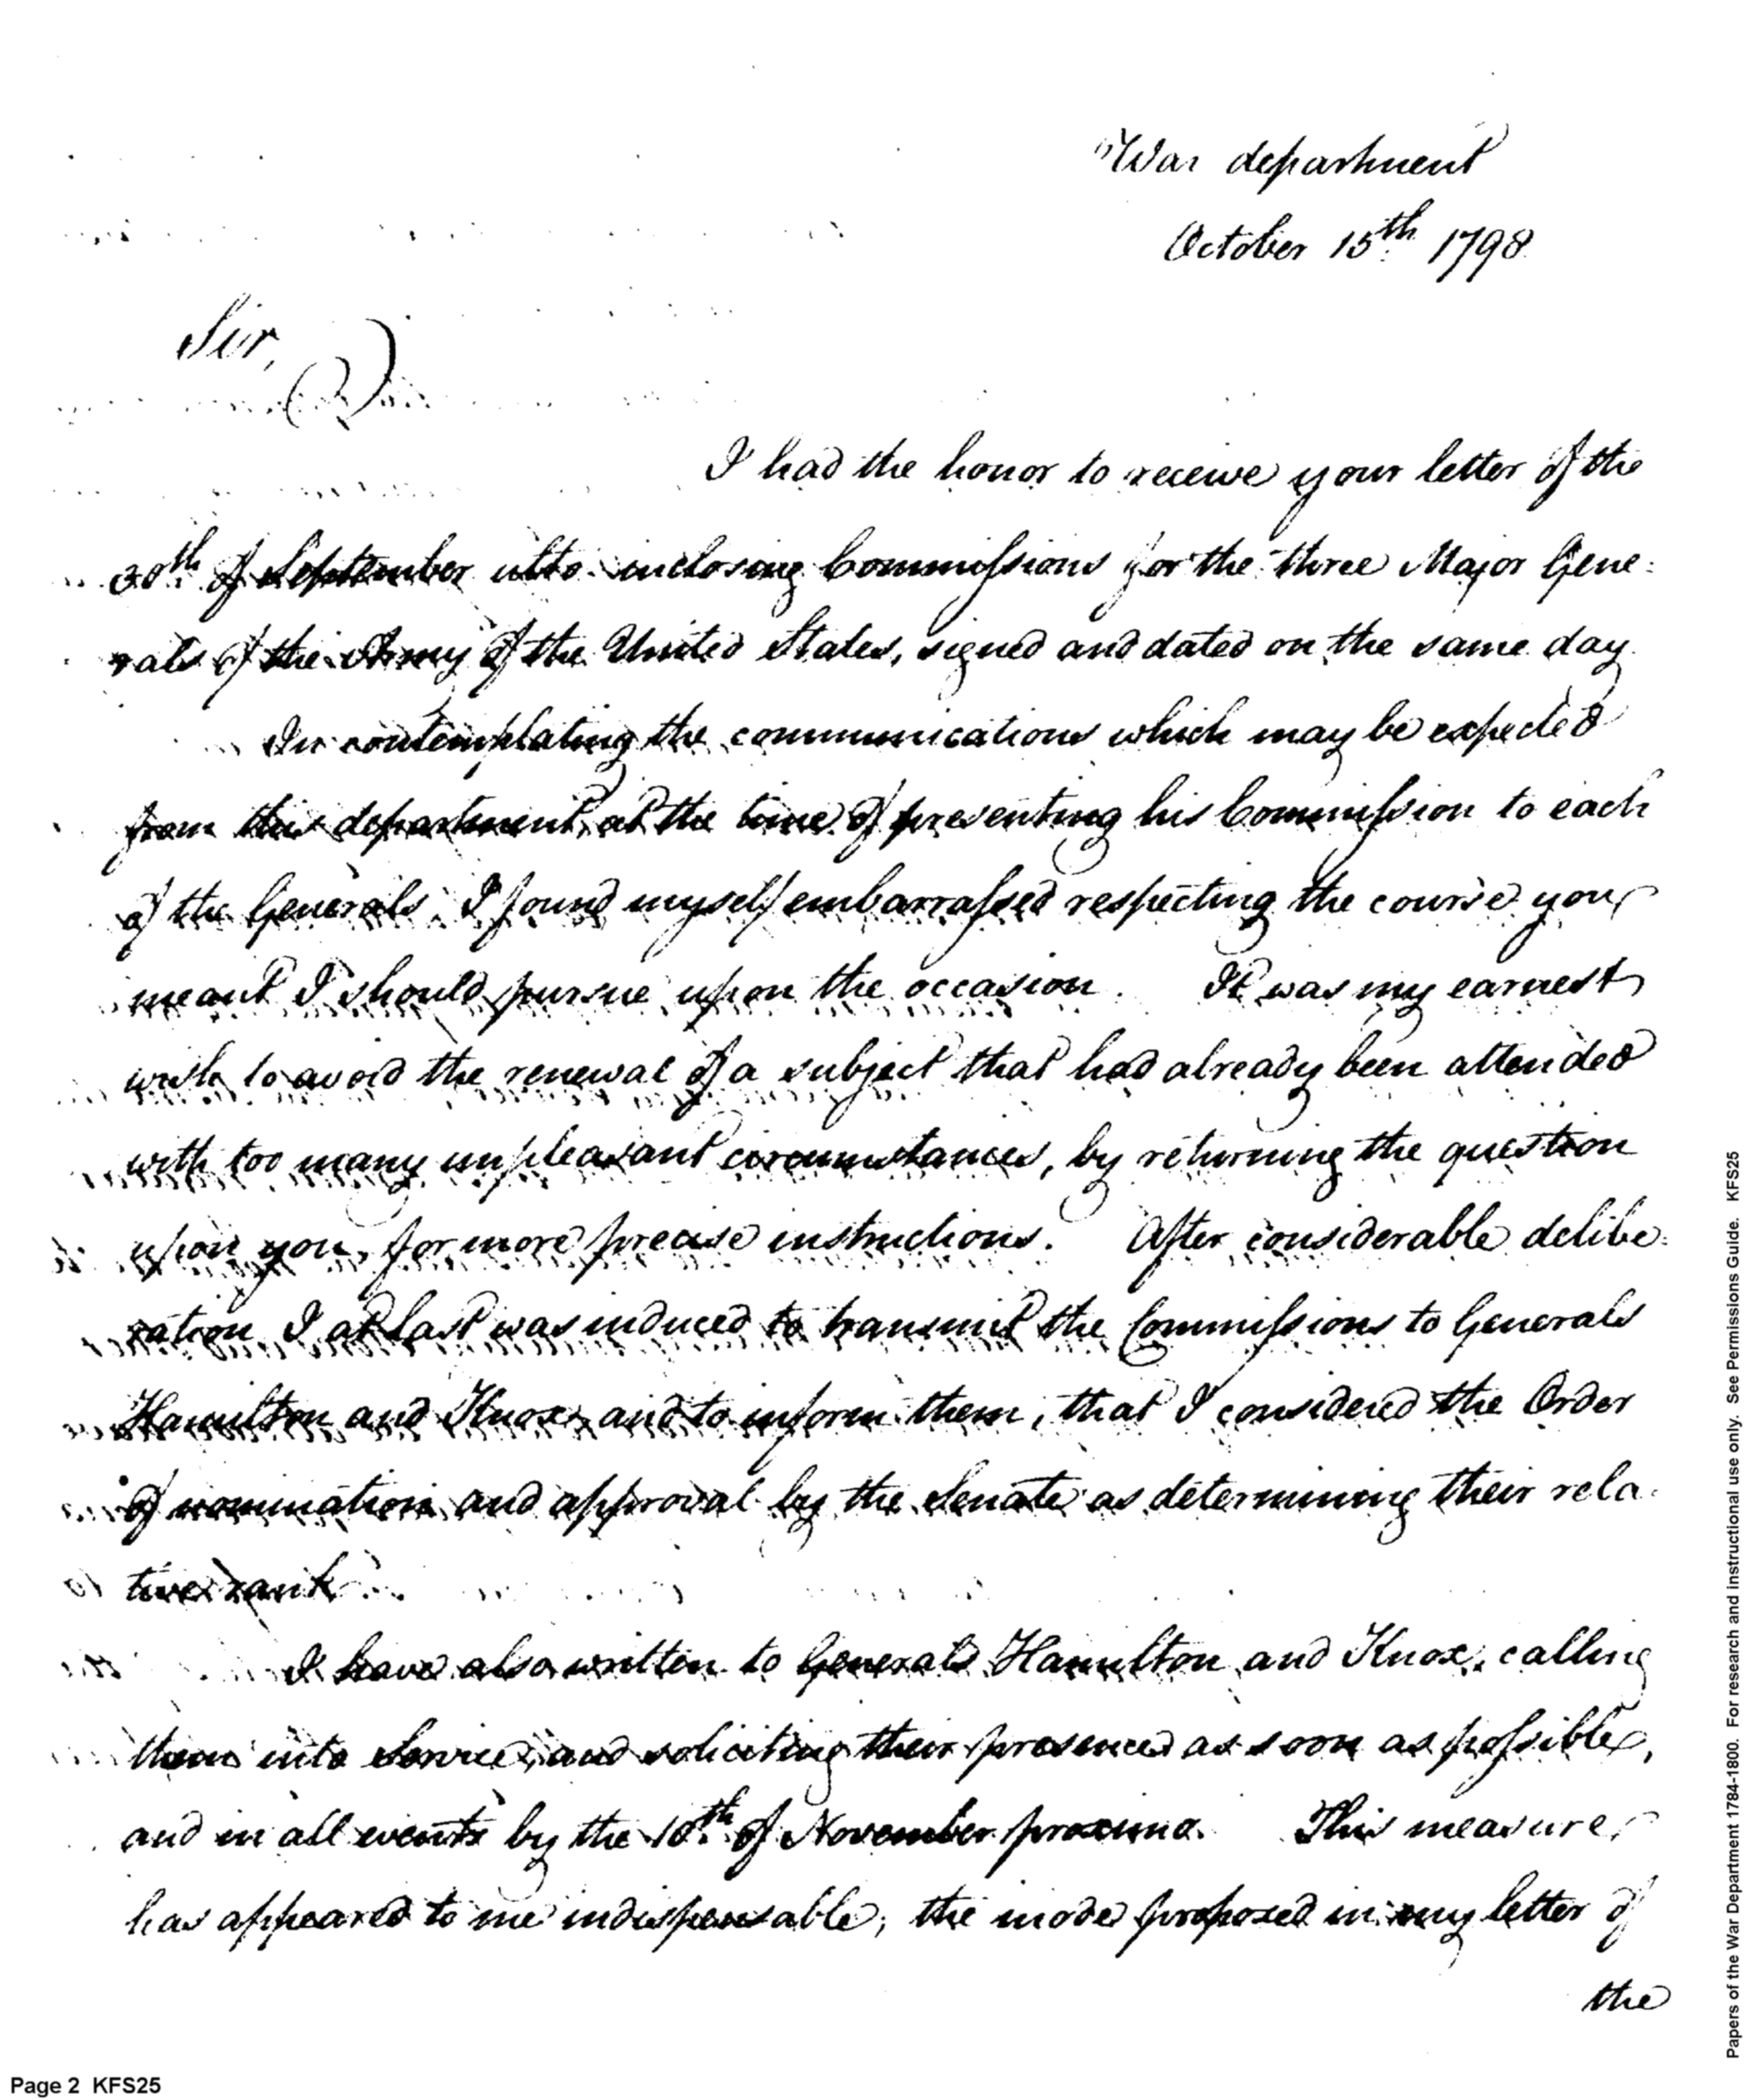 War department
October 15th 1798
Sir,
I had the honor to receive your letter of the
30th of September ulto. inclosing Commissions for the three Major Gene:
rals of the Army of the United States, signed and dated on the same day
In contemplating the communications which may be expected
from this department, at the time of presenting his Commission to each
of the Generals. I found myself embarrassed respecting the course you
meant I should pursue upon the occasion. It was my earnest
wish to avoid the renewal of a subject that had already been attended
with too many unpleasant circumstances, by returning the question
upon you, for more precise instructions. After considerable delibe:
ration I at last was induced to transmit the Commissions to Generals
Hamilton and Knox, and to inform them, that I considered the Order
of nomination and approval by the Senate as determining their rela-
tive rank.
I have also written to Generals Hamilton and Knox, calling
them into Service, and soliciting their presence as soon as possible,
and in all events by the 10th of November proximo. This measure
has appeared to me indispensable; the mode proposed in my letter of
the
Page 2 KFS25
Papers of the War Department 1784-1800. For research and instructional use only. See Permissions Guide. KFS25